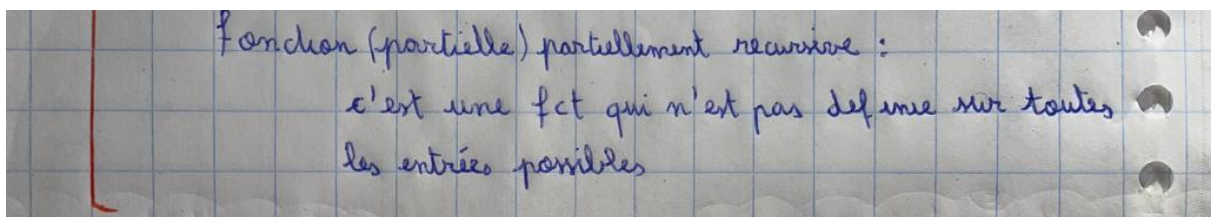 fonction (partielle) partiellement recursive :
c'est une fct qui n'est pas definie sur toutes
les entrées possibles